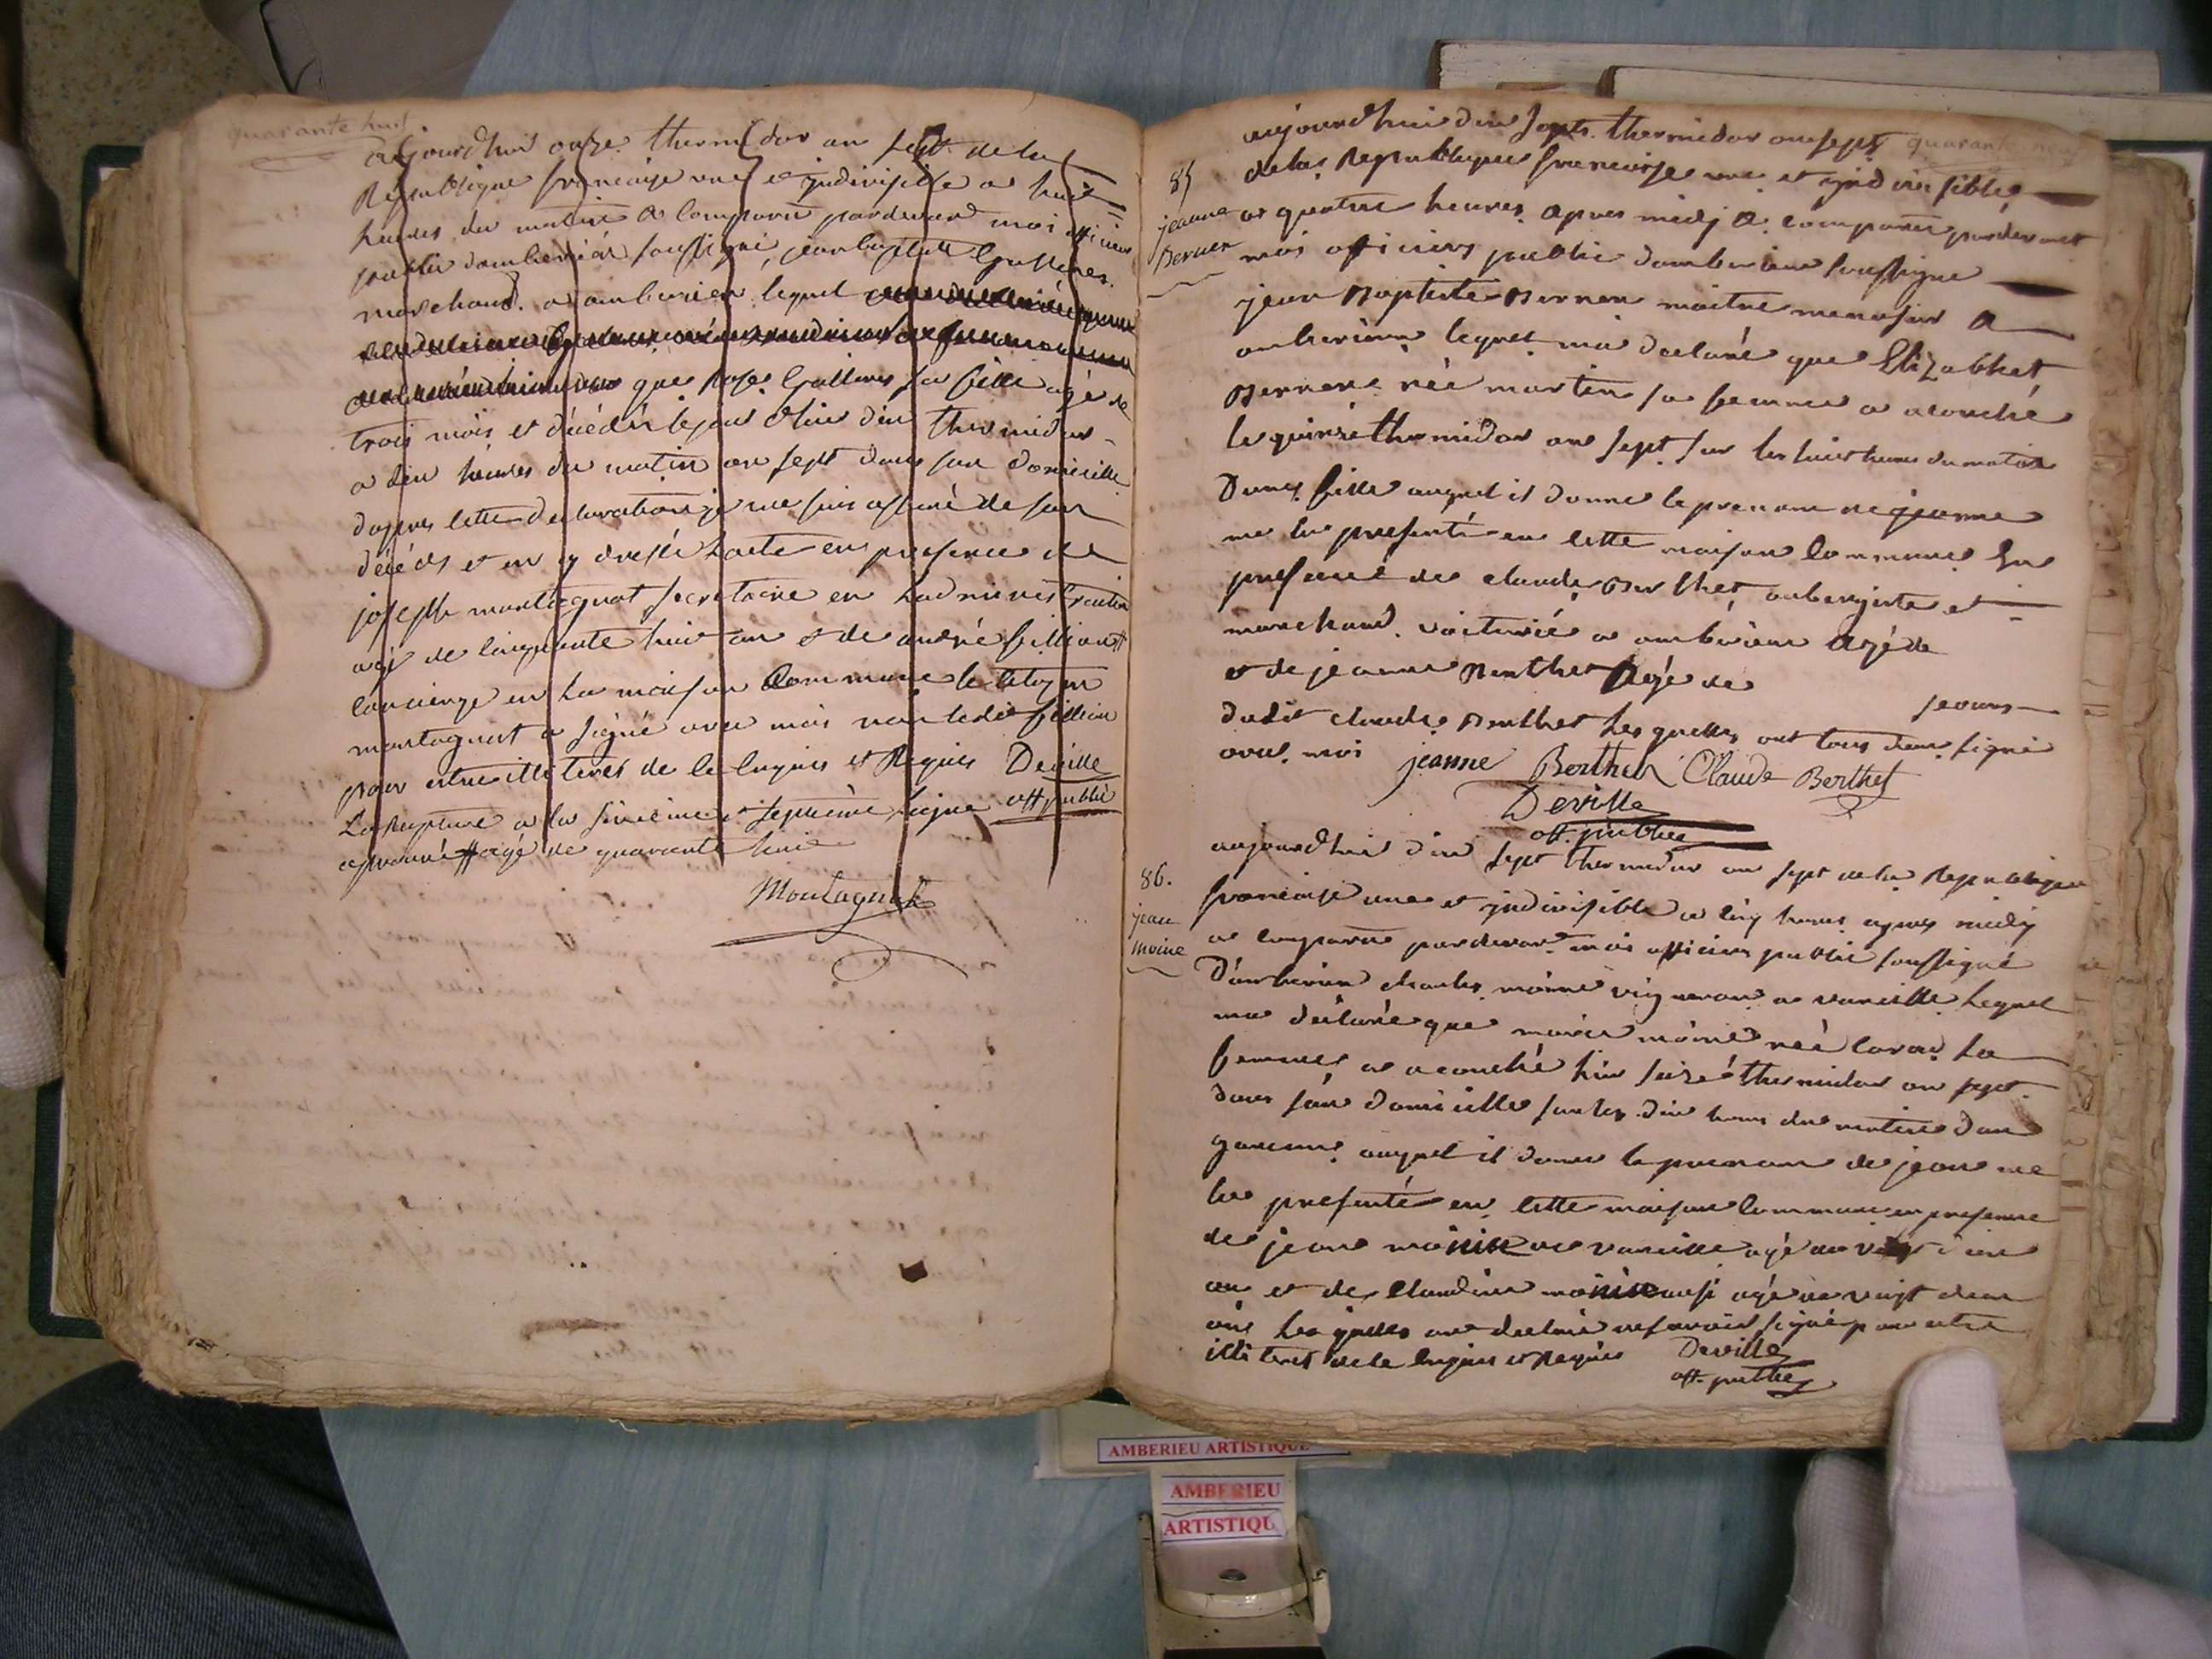 quarante huit
aujourdhui onze thermidor an sept de la
Republique francaise une et jndivisible a huit
heures du matin a comparu pardevant moi officier
public damberieu soussigné, jean baptiste
marchand a amberieu lequel
que Rose sa fille agé de
trois mois et décédé le jour dhier dix thermidor
a dix heures du matin an sept dans son domicille
dapres cette declaration je me suis assuré de son
décéds et en ay dressé lacte en presence de
joseph montagnat secretaire en ladministration
agé de cinquante huit an et de andré fillion #
concierge en la maison commune le citoyen
montagnat a signé avec moi non ledit fillion
pour estre illiteres de ce enquis et Requis Deville
La Rupture a la sixieme et septieme ligne off public
aprouvé # agé de quarante huit
Montagnat
quarante neuf
aujourdhui dix sept thermidor an sept
de la Republique francaise une et jndivisible
85
jeanne
Berner
a quatre heures apres midy a comparu pardevant
moi officier public damberieu soussigné
jean Baptiste Berner maitre menusier a
amberieu lequel ma declaré que Elizabhet
Berner née martin sa femme a acouché
le quinze thermidor an sept sur les huit heures du matin
Dune fille auquel il donne le prenom de jeanne
me la presenté en cette maison commune En
presence de claude Berthet aubergiste et
marchand voiturié a amberieu Agé de
et de jeanne Berthet Agé de
soeur
dudit claude Berthet Lesquelles ont tous deux signé
avec moi jeanne Berthet Claude Berthet
Deville
off. public
aujourdhui dix sept thermidor an sept de la Republique
86.
jean
moine
francaise une et jndivisible a cinq heures apres midy
a comparu pardevant moi officier public soussigné
D'amberieu charles moine vigneron a vareille Lequel
ma déclaré que marie moine née cavas sa
femme a acouché hier seize thermidor an sept
dans son domicille sur les dix heures du matin dun
garcons auquel il donne le prenom de jean me
la presenté en cette maison commune en presence
de jean moine de vareille agé de vingt deux
an et de claudine moine ausi agé de vingt deux
ans Lesquelles ont declaré ne savoir signé pour estre
illiteres de ce enquis et Requis Deville
off. public
AMBERIEU ARTISTIQUE
AMBERIEU
ARTISTIQU